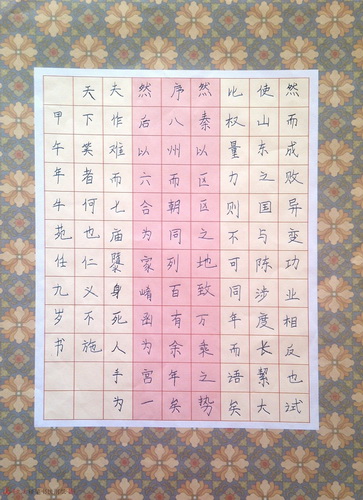 然而成败异变功业相反也试
使山东之国与陈涉度长絜大
比权量力则不可同年而语矣
然秦以区区之地致万乘之势
序八州而朝同列百有余年矣
然后以六合为家崤函为宫一
夫作难而七庙隳身死人手为
天下笑者何也仁义不施
甲午年牛苑任九岁书